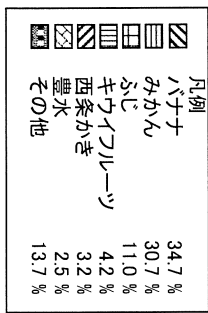 凡例
バナナ 34.7 %
みかん 30.7 %
ふじ 11.0 %
キウイフルーツ 4.2 %
西条かき 3.2 %
豊水 2.5 %
その他 13.7 %